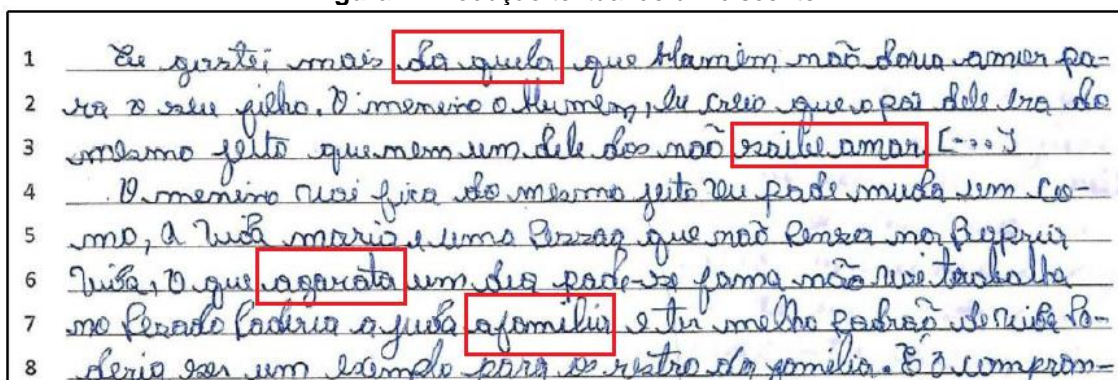 1 Eu gostei mais da quela que Mamim não dava amor pa-
2 ra o seu filho. O menino o Humem, Eu creio que o pai dele era do
3 mesmo jeito que nem um dele dos não saibe amar [...]
4 O menino vai fica do mesmo jeito ou pode muda um co-
5 mo, a vida maria e uma que não penza na
6 vida, O que agarata um dia pode-se fama não vai trabalha
7 no Pezado Poderia ajuda afamilia e ter melho padrão de vida Po-
8 deria ser um exemplo para os restro da familia. E o comprom-